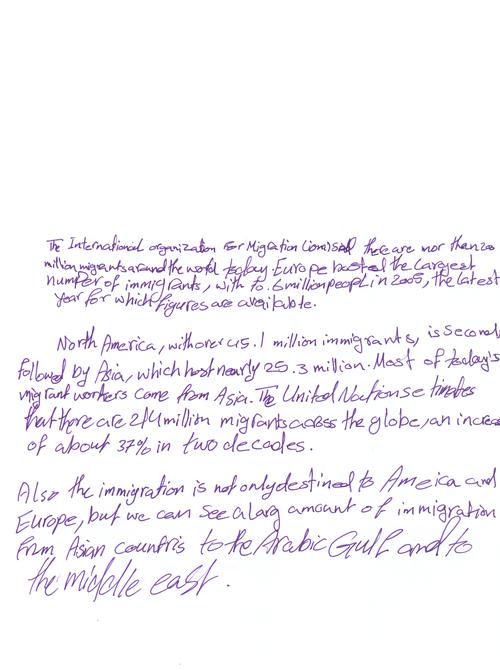 The International organization For Migration (iom) said there are mor than 200
million migrants around the world today Europe hosted the Largest
number of immigrants, with 70.6 million people in 2005, the latest
year for which figures are available.
North America, with over 45.1 million immigrants, is Second
followed by Asia, which host nearly 25.3 million. Most of today's
migrant workers come from Asia. The United Nations etimates
that there are 214 million migrants across the globe, an increa
of about 37% in two decades.
Also the immigration is not only destined to Ameica and
Europe, but we can see a larg amount of immigration
from Asian countris to the Arabic Gulf and to
the middle east.